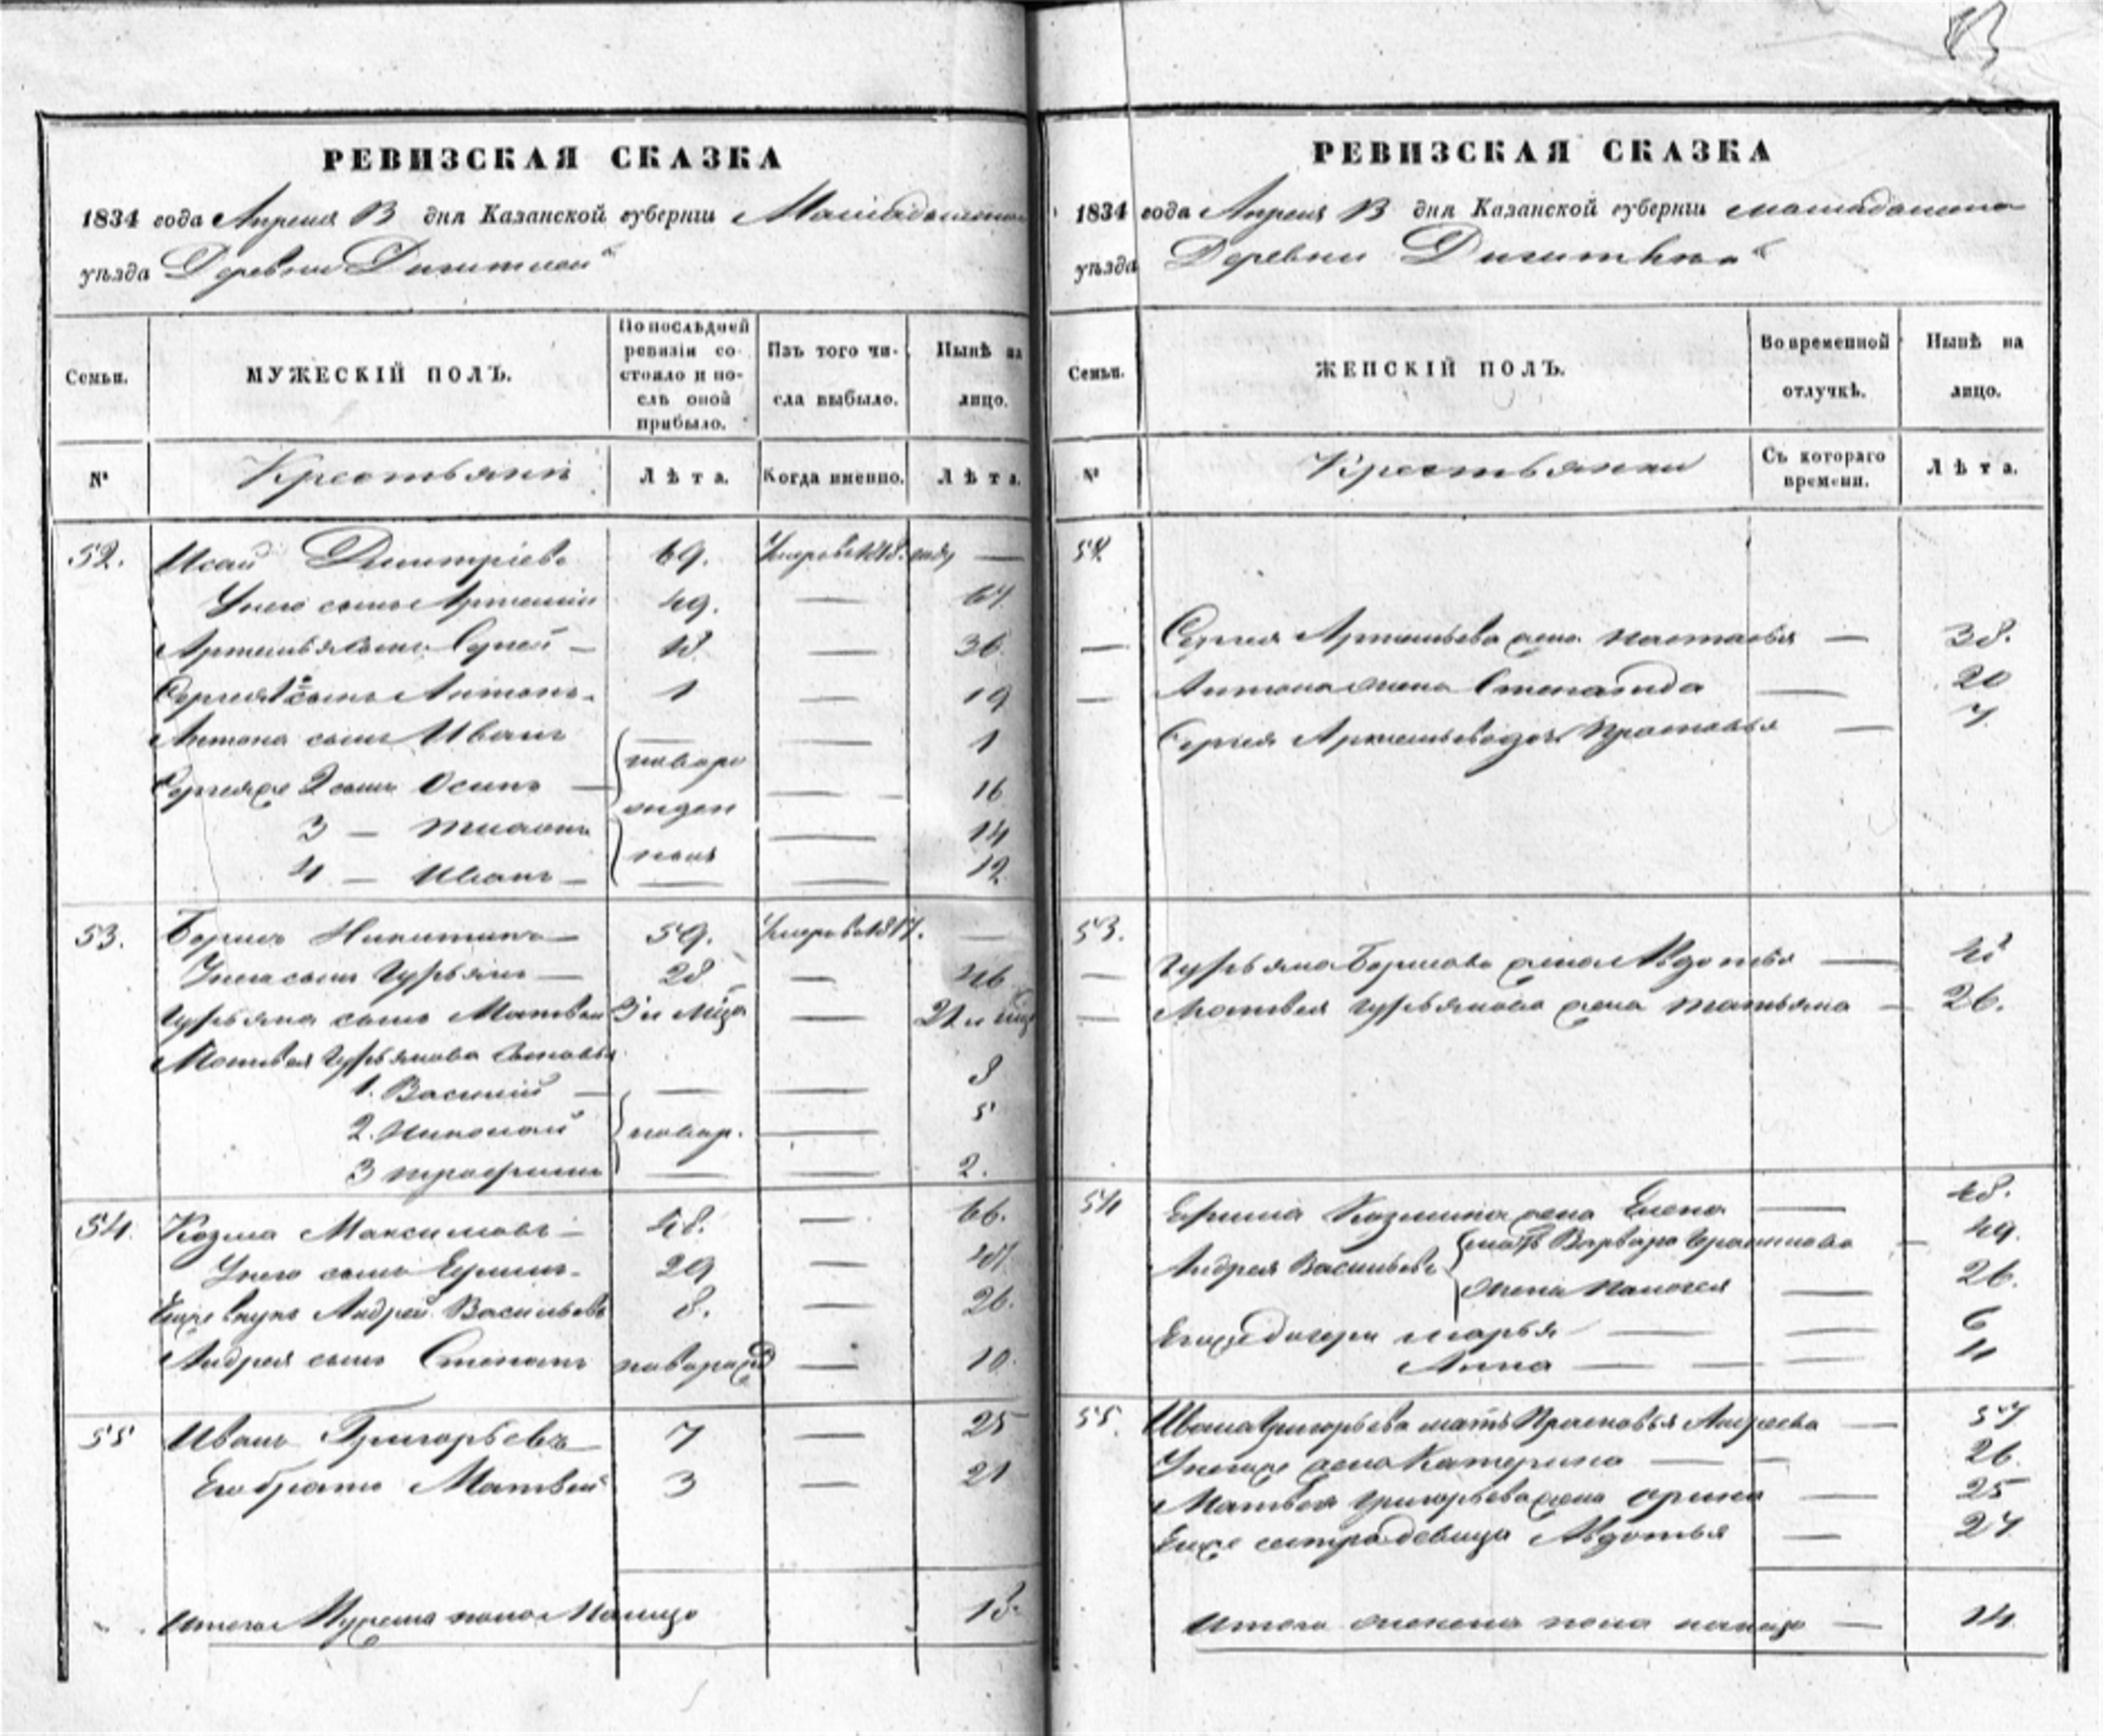 РЕВИЗСКАЯ СКАЗКА
1834 года Апреля В дня Казанской губернiи
уѣзда Деревни
Семьи.
МУЖЕСКIЙ ПОЛЪ.
По послѣдней ревизiи состояло и послѣ оной прибыло.
Изъ того числа выбыло.
Нынѣ на лицо.
№
Крестьянъ
Лѣта.
Когда именно.
Лѣта.
52. Исай Дмитрiевъ 69. Умеръ в 1818. году —
У него сынъ Артемiй 49. — 67
Артемья сынъ Сергей — 18 — 36
Сергея 1й сынъ Антонъ 1 — 19
Антона сынъ Иванъ — 1
Сергея же 2 сынъ Осипъ — новоро — 16
жден
3 — — 14
ныя
4 — Иванъ — — — 12
53. Борисъ Никитинъ — 59. Умеръ в 1817. —
У него сынъ Гурьянъ — 28 — 46
Гурьяна сынъ Матвей 3 и — 21 и
Матвея Гурьянова сыновья
1. Василий — — — 8
2. Николай новор. — 5
3 Трофимъ — — 2.
54. Козма Максимовъ — 48. — 66.
У него сынъ Ефимъ 29 — 47
Ево же внукъ Андрей Васильевъ 8. — 26.
Андрея сынъ Степанъ поворожд — 10.
55 Иванъ Григорьевъ 7 — 25
Ево братъ Матвей 3 — 21
Итого Мужеска пола Налицо 18.
РЕВИЗСКАЯ СКАЗКА
1834 года Апреля В дня Казанской губернiи
уѣзда Деревни
Семьи.
ЖЕНСКIЙ ПОЛЪ.
Во временной отлучкѣ.
Нынѣ на лицо.
№
Крестьянки
Съ котораго времени.
Лѣта.
52
— Сергея Артемьева жена Настасья — 38.
— Антона жена Степанида — 20
Сергея Артемьева дочь Прасковья — 7
53.
— Гурьяна Борисова жена Авдотья —
— Матвея Гурьянова жена Татьяна — 26.
54 Ефима Козмина жена Елена — 48.
мать Варвара Герасимова — 49.
Андрея Васильева
жена Палагея — 26.
Его же дочери Марья — — 6
Анна — — —
55. Ивана Григорьева мать Прасковья Андреева — 57
У него же жена Катерина — — 26.
Матвея Григорьева жена Арина — 25
Ево же сестра девица Авдотья — 27
Итого женска пола налицо — 14